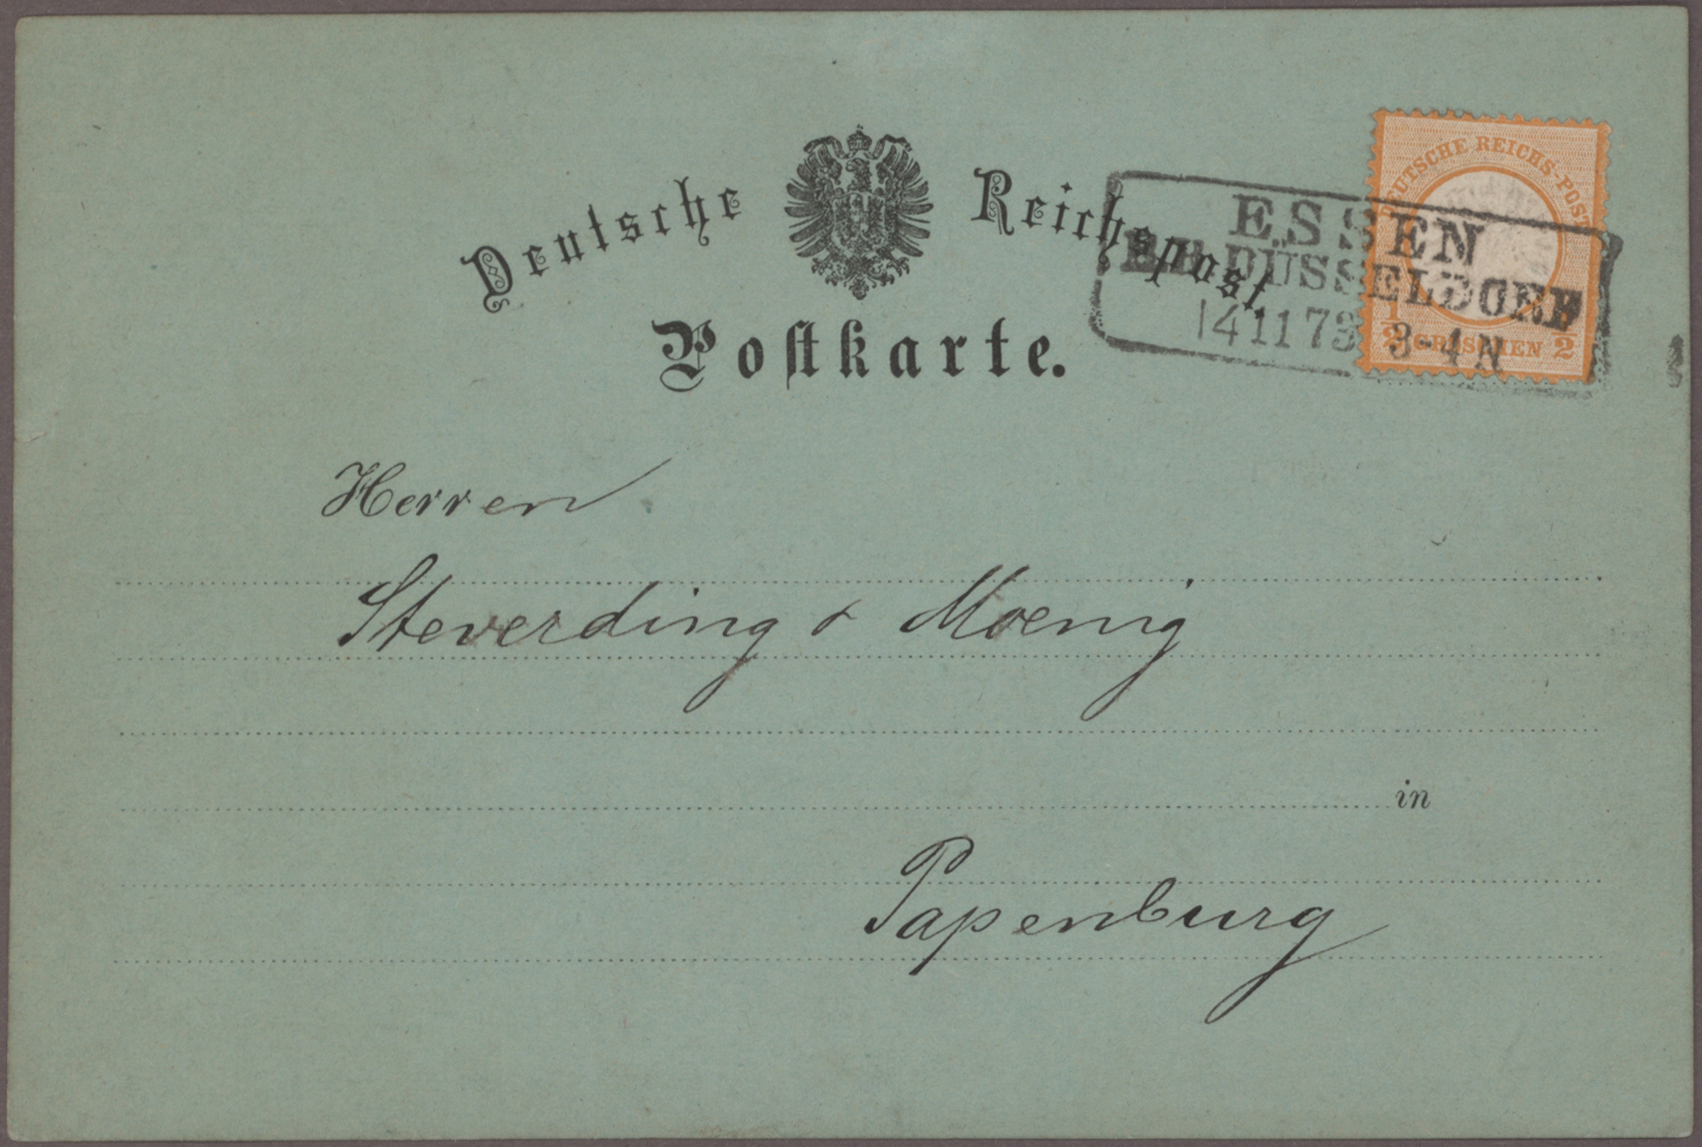 Deutsche Reichspost.
Postkarte.
DEUTSCHE REICHS-POST
1/2 GROSCHEN 1/2
ESSEN
R.B. DÜSSELDORF
14 11 73 3-4 N
Herren
Steverding & Moenig
in
Papenburg